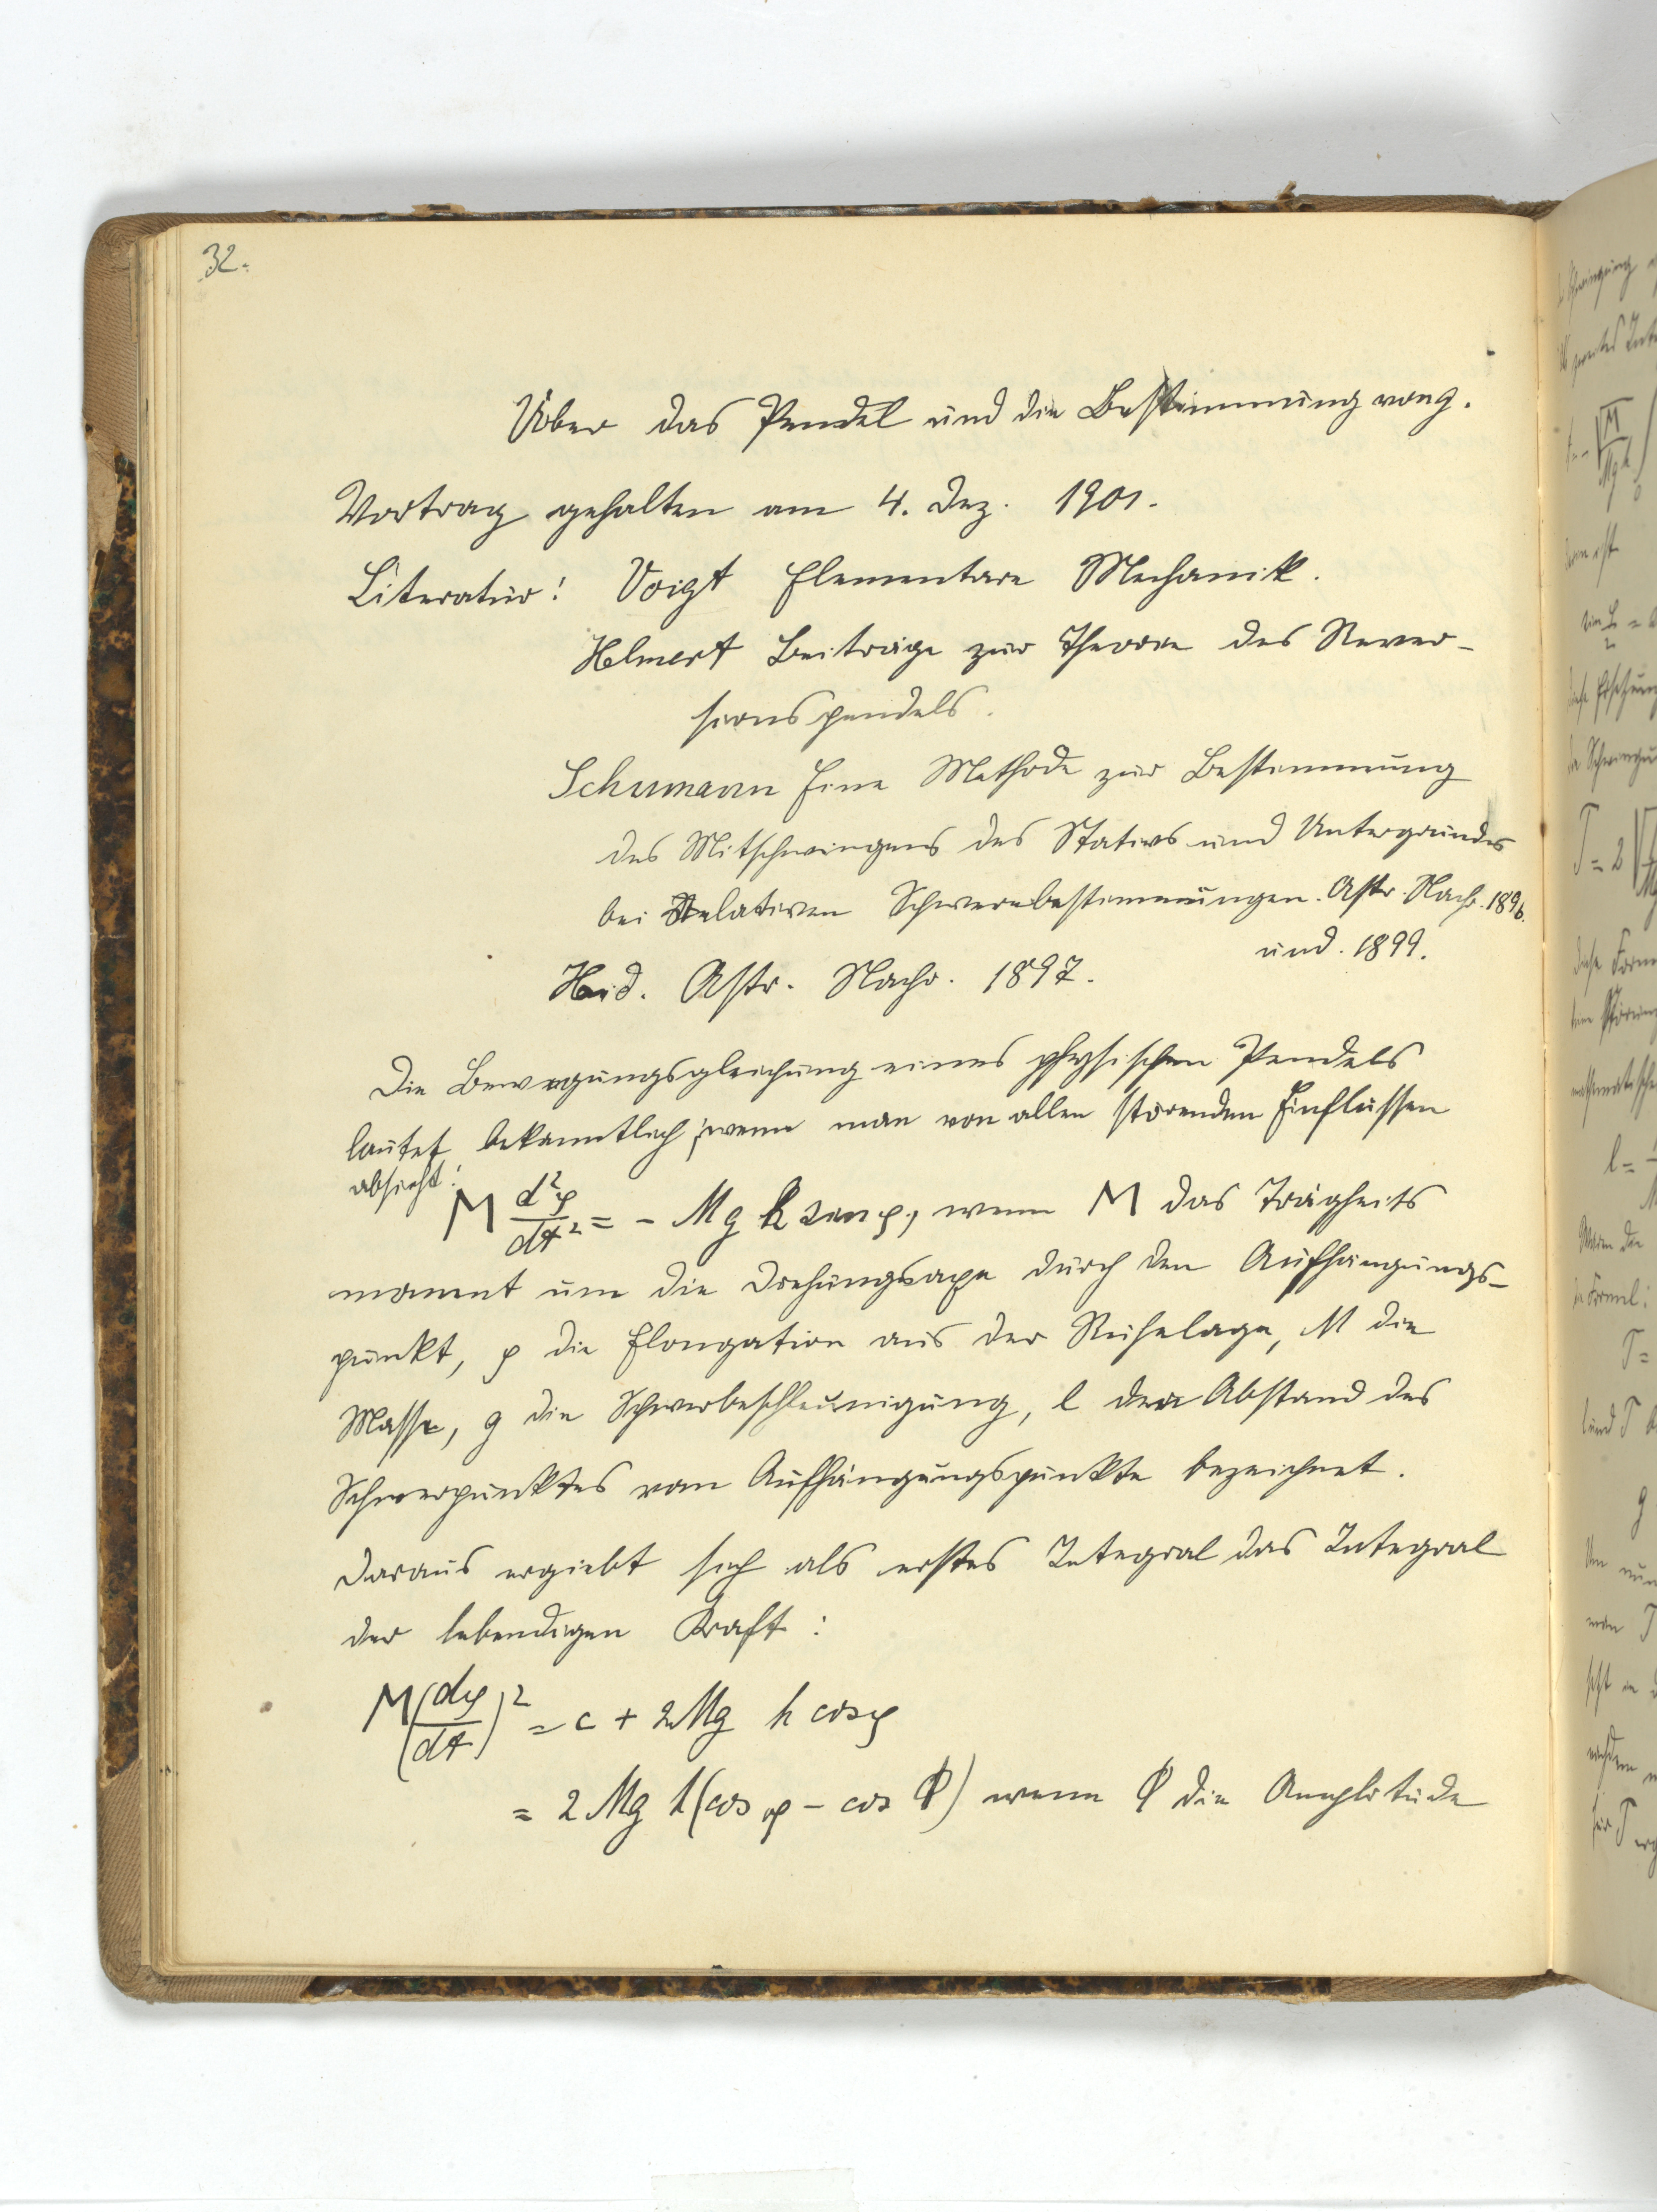 32.
Über das Pendel und die Bestimmung von g.
Vortrag gehalten am 4. Dez. 1901.
Literatur: Voigt Elementare Mechanik.
Helmert Beiträge zur Theorie des Rever-
sionspendels.
Schumann Eine Methode zur Bestimmung
des Mitschwingens des Stativs und Untergrundes
bei Relativen Schwerebestimmungen. Astr. Nachr. 1896.
und. 1899.
Astr. Nachr. 1897.
Die Bewegungsgleichung eines physischen Pendels
lautet bekanntlich, wenn man von allen störenden Einflüssen
absieht:
M d²φ/dt² = - Mg h sin φ, wenn M das Trägheits
moment um die Drehungsaxe durch den Aufhängungs-
punkt, φ die Elongation aus der Ruhelage, M die
Masse, g die Schwerbeschleunigung, l den Abstand des
Schwerpunktes vom Aufhängungspunkte bezeichnet.
Daraus ergiebt sich als erstes Integral das Integral
der lebendigen Kraft:
M(dφ/dt)² = c + 2Mg h cos φ
= 2 Mg h (cos φ - cos Φ) wenn Φ die Amplitude